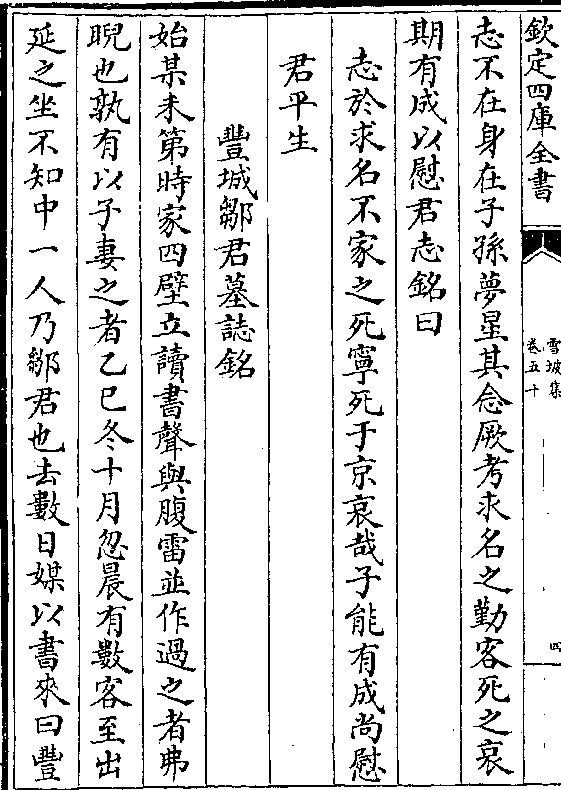 欽定四庫全書
雪坡集
卷五十
四
志不在身在子孫夢星其念厥考求名之勤客死之哀
期有成以慰君志銘曰
志於求名不家之死寧死于京哀哉子能有成尚慰
君平生
豐城鄒君墓誌銘
始某未第時家四壁立讀書聲與腹雷並作過之者弗
睨也孰有以子妻之者乙巳冬十月忽晨有數客至出
延之坐不知中一人乃鄒君也去數日媒以書來曰豐